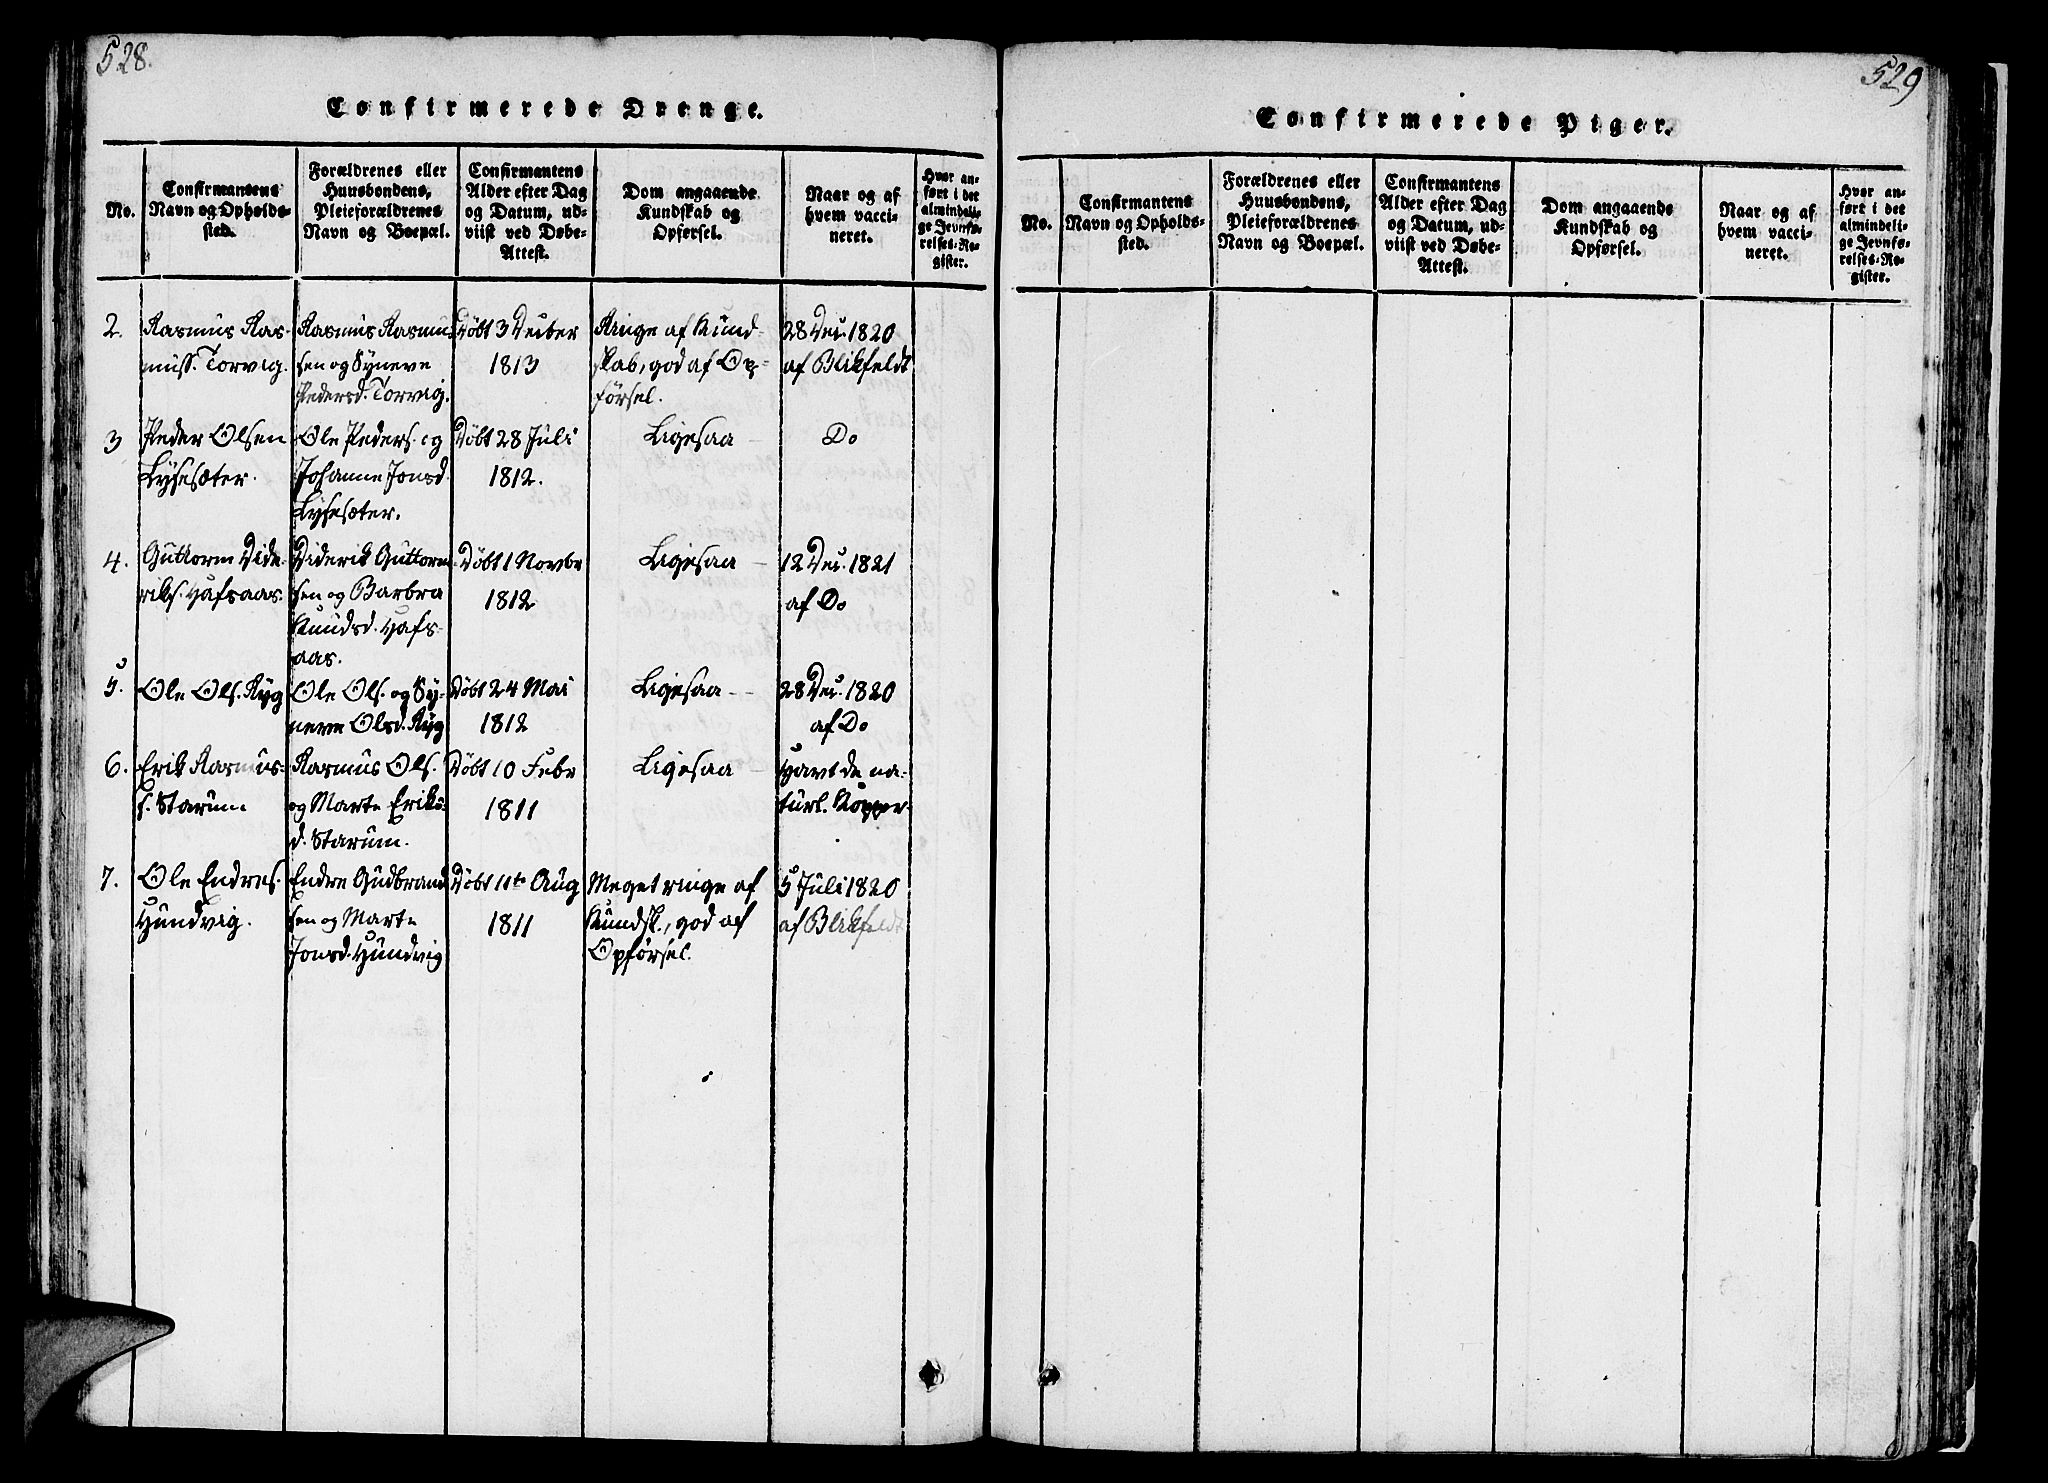 528.
Confirmerede Drenge.
No.
Confirmantens
Navn og Opholds-
sted.
Forældrenes eller
Huusbondens,
Pleieforældrenes
Navn og Boepæl.
Confirmantens
Alder efter Dag
og Datum, ud-
viist ved Døbe-
Attest.
Dom angaaende
Kundskab og
Opførsel.
Naar og af
hvem vacci-
neret.
Hvor an-
ført i det
almindeli-
ge Jevnfø-
relses-Re-
gister.
2.
Rasmus Ras-
muss. Torvig.
Rasmus Rasmus
sen og Syneve
Pedersd. Torvig.
Døbt 3 Decber
1813
Ringe af Kund-
skab, god af Op-
førsel.
28 Dec. 1820
af Blikfeldt
3
Peder Olsen
Lysesæter.
Ole Peders. og
Johanne Jonsd.
Lysesæter.
Døbt 28 Juli
1812.
Ligesaa -
Do
4.
Guttorm Dide-
riks. Hafsaas.
Diderik Guttorm-
sen og Barbra
Knudsd. Hafs-
aas.
Døbt 1 Novbr
1812
Ligesaa -
12 Dec. 1821
af Do
5.
Ole Ols. Ryg
Ole Ols. og Sy-
neve Olsd. Ryg
Døbt 24 Mai
1812
Ligesaa --
28 Dec. 1820
af Do
6.
Erik Rasmus-
s. Starum
Rasmus Ols.
og Marte Eriks-
d. Starum.
Døbt 10 Febr
1811
Ligesaa -
Havt de na-
turl. Kopper.
7.
Ole Endres.
Hundvig.
Endre Gudbrand
sen og Marte
Jonsd. Hundvig
Døbt 11te Aug
1811
Meget ringe af
Kundsk., god af
Opførsel.
5 Juli 1820
af Blikfeldt
529
Confirmerede Piger.
No.
Confirmantens
Navn og Opholds-
sted.
Forældrenes eller
Huusbondens,
Pleieforældrenes
Navn og Boepæl.
Confirmantens
Alder efter Dag
og Datum, ud-
viist ved Døbe-
Attest.
Dom angaaende
Kundskab og
Opførsel.
Naar og af
hvem vacci-
neret.
Hvor an-
ført i det
almindeli-
ge Jevnfø-
relses-Re-
gister.